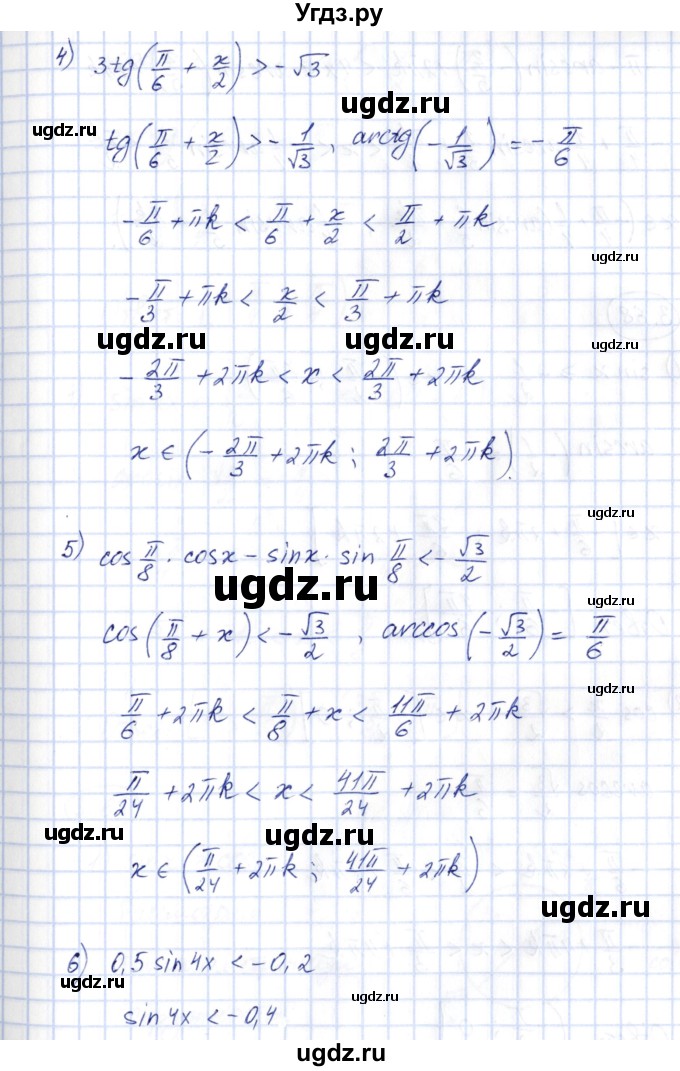 Угдз.ру
4) 3tg(π/6 + x/2) > -√3
ugdz.ru
ugdz.ru
tg(π/6 + x/2) > -1/√3, arctg(-1/√3) = -π/6
-π/6 + πk < π/6 + x/2 < π/2 + πk
ugdz.ru
-π/3 + πk < x/2 < π/3 + πk
ugdz.ru ugdz.ru
-2π/3 + 2πk < x < 2π/3 + 2πk
x ∈ (-2π/3 + 2πk; 2π/3 + 2πk).
ugdz.ru
5) cos π/8 · cosx - sinx · sin π/8 < -√3/2
ugdz.ru
cos(π/8 + x) < -√3/2, arccos(-√3/2) = π/6
ugdz.ru
π/6 + 2πk < π/8 + x < 11π/6 + 2πk
π/24 + 2πk < x < 41π/24 + 2πk
ugdz.ru ugdz.ru
x ∈ (π/24 + 2πk; 41π/24 + 2πk)
ugdz.ru
6) 0,5 sin4x < -0,2
ugdz.ru
ugdz.ru
sin4x < -0,4
ugdz.ru